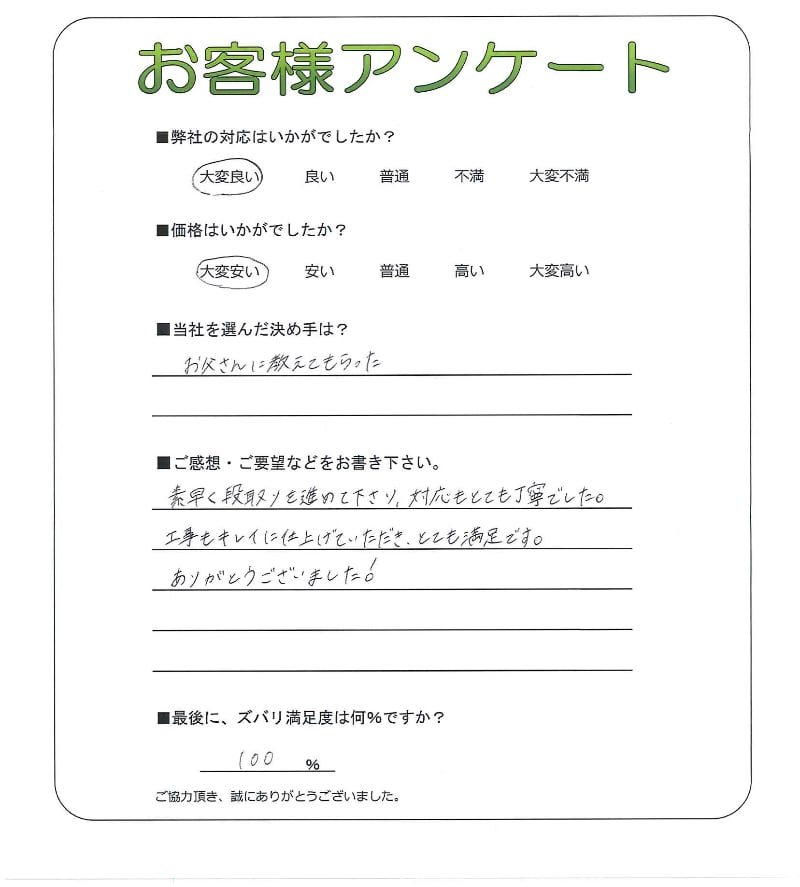 お客様アンケート
■弊社の対応はいかがでしたか？
大変良い 良い 普通 不満 大変不満
■価格はいかがでしたか？
大変安い 安い 普通 高い 大変高い
■当社を選んだ決め手は？
お父さんに教えてもらった
■ご感想・ご要望などをお書き下さい。
素早く段取りを進めて下さり、対応もとても丁寧でした。
工事もキレイに仕上げていただき、とても満足です。
ありがとうございました！
■最後に、ズバリ満足度は何％ですか？
100 ％
ご協力頂き、誠にありがとうございました。